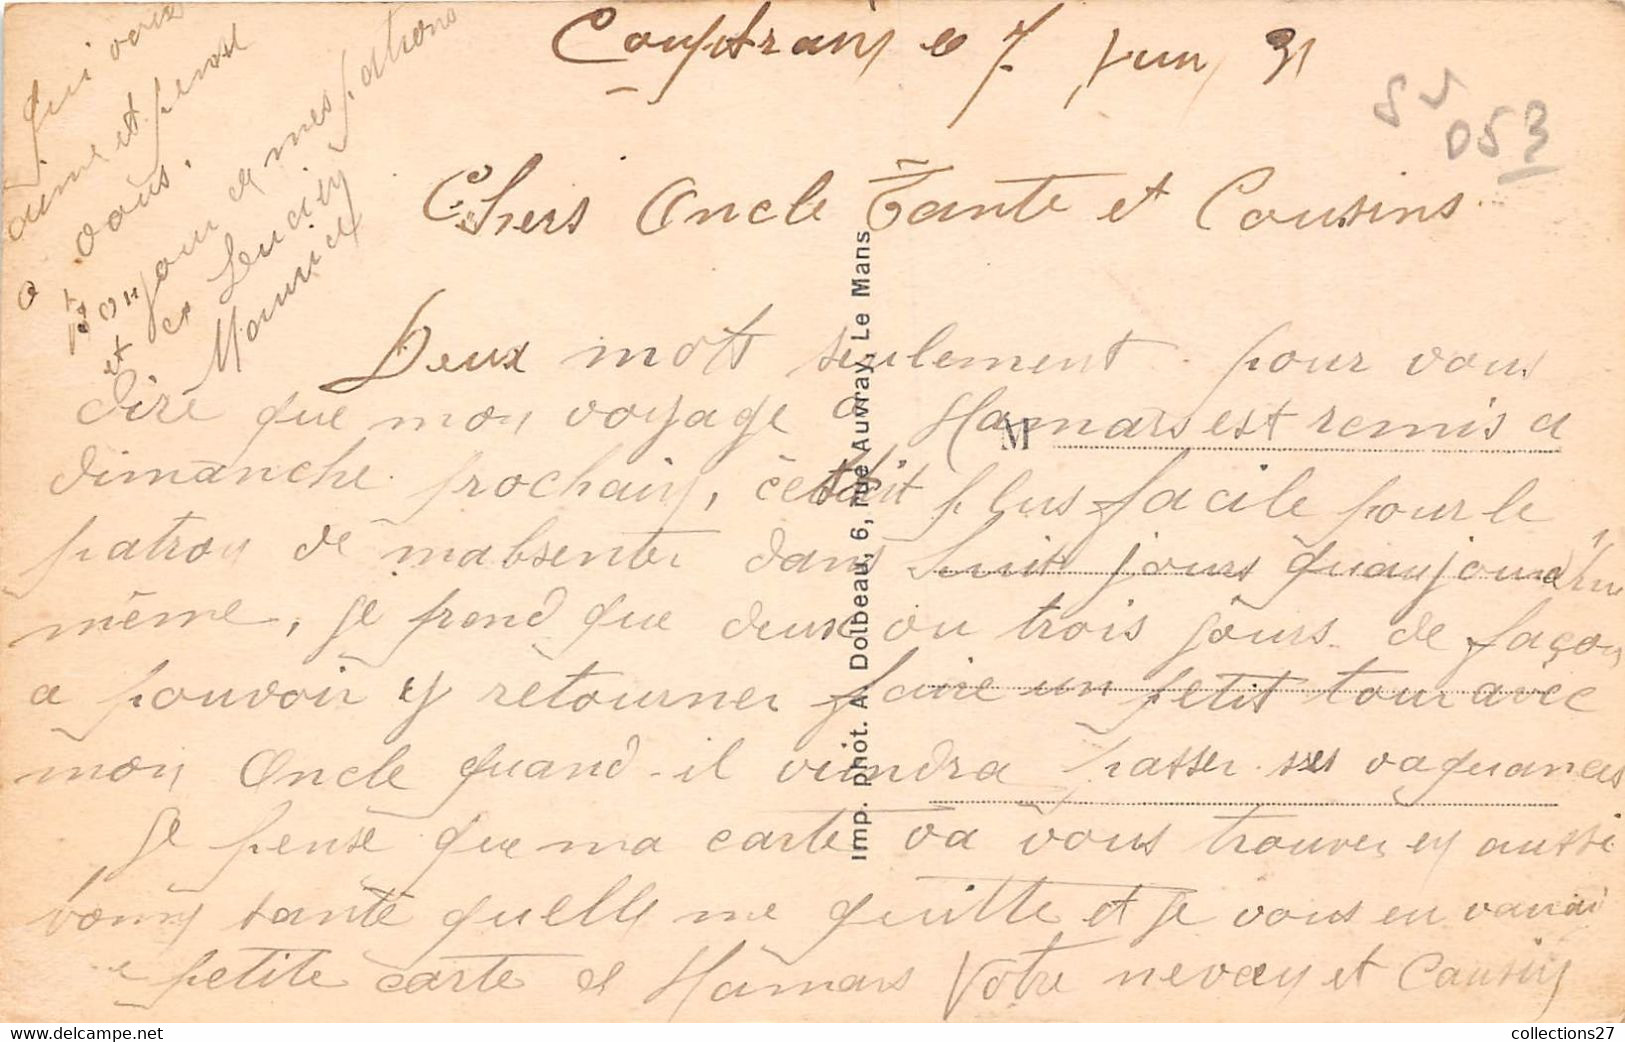 Couptrain le 7 Juin 31
SV
053
Chers Oncle Tante et Cousins
Deux mots seulement pour vous
dire que mon voyage a Hamars est remis a
dimanche prochain, cetait plus facile pour le
patron de mabsenter dans huit jours quaujourdhui
même, je prend que deux ou trois jours de façon
a pouvoir y retourner faire un petit tour avec
mon Oncle quand il viendra passer ses vaquances
Je pense que ma carte va vous trouver en aussi
bonne santé quelle me quitte et je vous en
petite carte de Hamars Votre neveu et Cousin
qui vous
aime et pense
a vous.
Bonjour de mes patrons
et de Lucien
Maurice
M
Imp. phot. A. Dolbeau, 6, rue Auvray, Le Mans
collections27